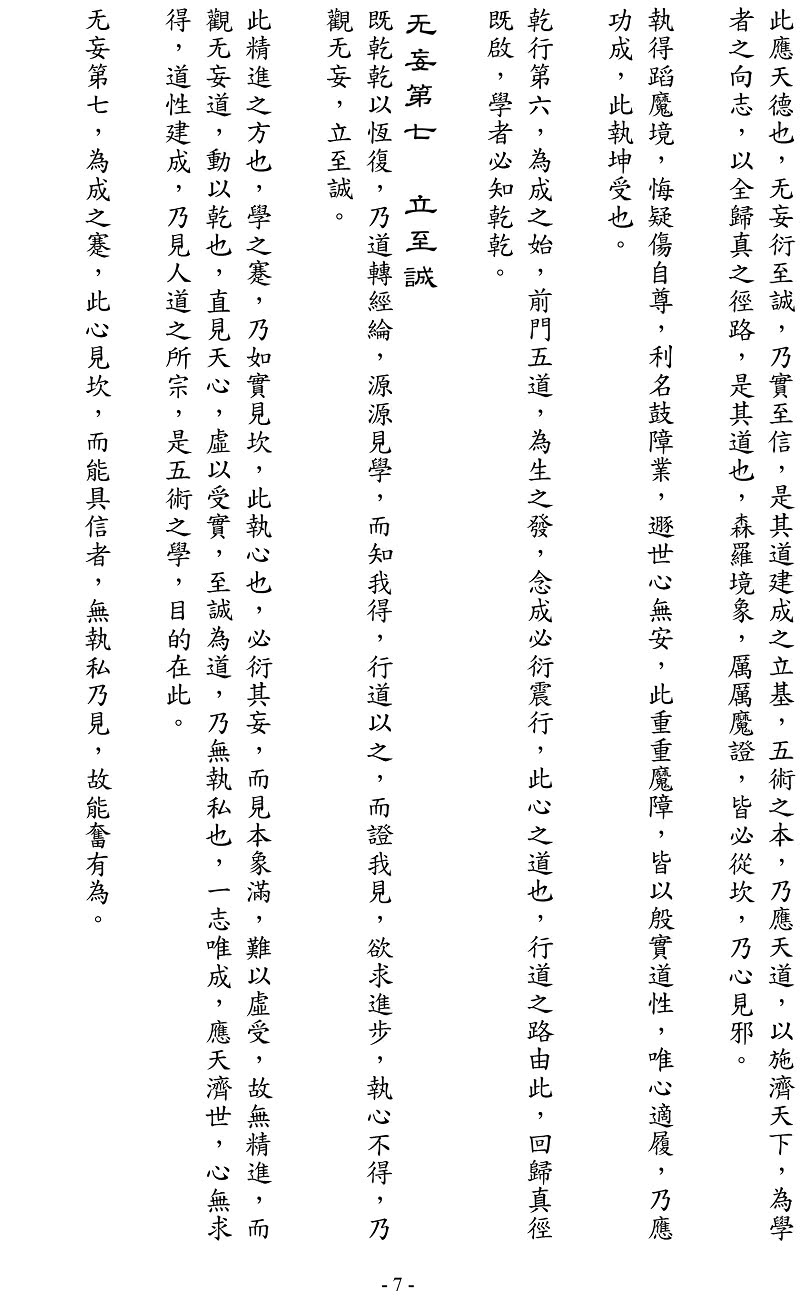 此應天德也，无妄衍至誠，乃實至信，是其道建成之立基，五術之本，乃應天道，以施濟天下，為學
者之向志，以全歸真之徑路，是其道也，森羅境象，厲厲魔證，皆必從坎，乃心見邪。
執得蹈魔境，悔疑傷自尊，利名鼓障業，遯世心無安，此重重魔障，皆以殷實道性，唯心適履，乃應
功成，此執坤受也。
乾行第六，為成之始，前門五道，為生之發，念成必衍震行，此心之道也，行道之路由此，回歸真徑
既啟，學者必知乾乾。
无妄第七　立至誠
既乾乾以恆復，乃道轉經綸，源源見學，而知我得，行道以之，而證我見，欲求進步，執心不得，乃
觀无妄，立至誠。
此精進之方也，學之蹇，乃如實見坎，此執心也，必衍其妄，而見本象滿，難以虛受，故無精進，而
觀无妄道，動以乾也，直見天心，虛以受實，至誠為道，乃無執私也，一志唯成，應天濟世，心無求
得，道性建成，乃見人道之所宗，是五術之學，目的在此。
无妄第七，為成之蹇，此心見坎，而能具信者，無執私乃見，故能奮有為。
- 7 -